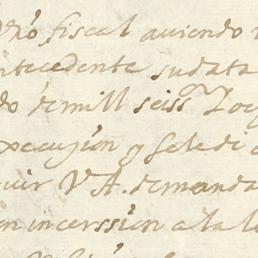 fiscal auiendo
ntecedente su data
do de mill seiss
xecuçion q se le de
uir V A. demanda
on incerssion a la le